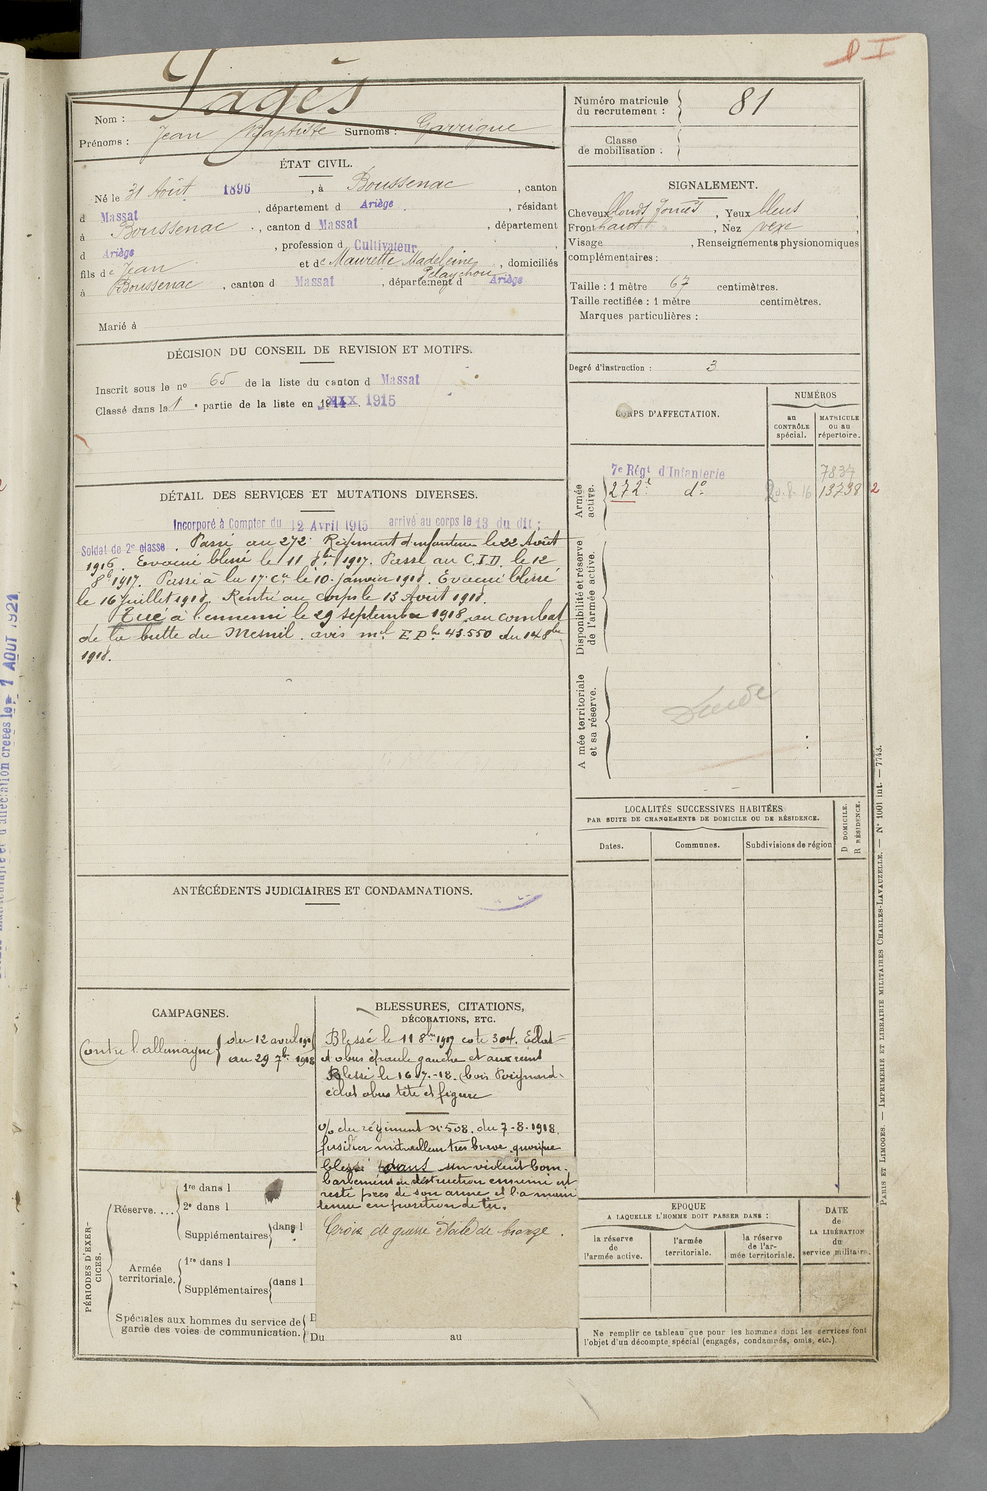 D I
Pagès
Nom :
Prénoms : Jean Baptiste Surnoms : Garrigue
Numéro matricule
du recrutement : 81
Classe
de mobilisation :
ÉTAT CIVIL.
Né le 31 Août 1896, à Boussenac, canton
d Massat, département d Ariège, résidant
à Boussenac, canton d Massat, département
d Ariège, profession d Cultivateur,
fils de Jean et de Maurette Madeleine, domiciliés
à Boussenac, canton d Massat, département d Ariège
Marié à
SIGNALEMENT.
Cheveux blonds foncés, Yeux bleus,
Front haut, Nez vexe,
Visage , Renseignements physionomiques
complémentaires :
Taille : 1 mètre 67 centimètres.
Taille rectifiée : 1 mètre centimètres.
Marques particulières :
DÉCISION DU CONSEIL DE REVISION ET MOTIFS.
Inscrit sous le nº 65 de la liste du canton d Massat
Classé dans la 1e partie de la liste en 1915
Degré d'instruction : 3
CORPS D'AFFECTATION.
NUMÉROS
au
CONTRÔLE
spécial.
MATRICULE
ou au
répertoire.
Armée
active.
7e Régt d'Infanterie 7834
272e do 20.8.16 13738 2
Disponibilité et réserve
de l'armée active.
A mée territoriale
et sa réserve.
Décédé
DÉTAIL DES SERVICES ET MUTATIONS DIVERSES.
Incorporé à Compter du 12 Avril 1915 arrivé au corps le 13 du dit ;
Soldat de 2e classe. Passé au 272e Régiment d'infanterie le 22 Août
1916. Evacué blessé le 11 8bre 1917. Passé au C.I.D. le 12
8b 1917. Passé à la 17e Cie le 10 janvier 1918. Evacué blessé
le 16 juillet 1918. Rentré au corps le 15 Août 1918.
Tué à l'ennemi le 29 septembre 1918 au combat
de la butte du Mesnil. avis ml E Dh 43.550 du 14 8bre
1918.
LOCALITÉS SUCCESSIVES HABITÉES
PAR SUITE DE CHANGEMENTS DE DOMICILE OU DE RÉSIDENCE.
Dates.
Communes.
Subdivisions de région
D DOMICILE.
R RÉSIDENCE.
ANTÉCÉDENTS JUDICIAIRES ET CONDAMNATIONS.
CAMPAGNES.
Contre l'allemagne du 12 avril
au 29 7bre 1918
BLESSURES, CITATIONS,
DÉCORATIONS, ETC.
Blessé le 11 8bre 1917 cote 304. Eclat
d'obus épaule gauche et aux reins
Blessé le 16-7-18. bois
éclat obus tête et figure
o/o du régiment N° 508. du 7-8-1918.
fusilier mitrailleur très brave, quoique
blessé dans un violent bom-
bardement de destruction ennemi est
resté près de son arme et l'a main
tenue en position de tir.
Croix de guerre étoile de bronze.
PÉRIODES D'EXER-
CICES.
Réserve....
1re dans l
2e dans l
Supplémentaires dans l
Armée
territoriale.
1re dans l
Supplémentaires dans l
Spéciales aux hommes du service de
garde des voies de communication.
Du au
EPOQUE
A LAQUELLE L'HOMME DOIT PASSER DANS :
la réserve
de
l'armée active.
l'armée
territoriale.
la réserve
de l'ar-
mée territoriale.
DATE
de
LA LIBÉRATION
du
service militaire.
Ne remplir ce tableau que pour les hommes dont les services font
l'objet d'un décompte spécial (engagés, condamnés, omis, etc.).
PARIS ET LIMOGES. — IMPRIMERIE ET LIBRAIRIE MILITAIRES CHARLES-LAVAUZELLE. — Nº 1001 int. — 7743.
1 AOUT 1921